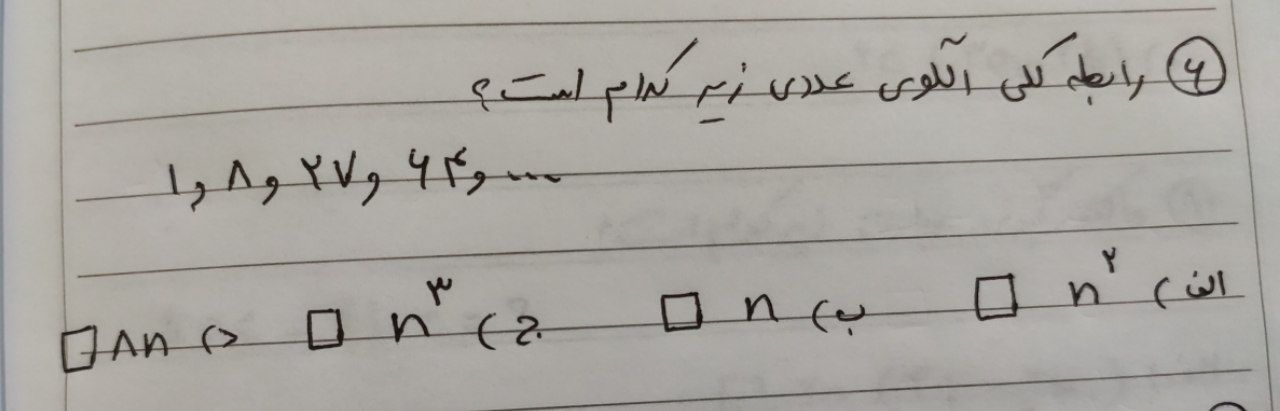 ۶ رابطه کلی الگوی عددی زیر کدام است؟
۱ و ۸ و ۲۷ و ۶۴ و ...
الف) n² □ ب) n □ ج) n³ □ د) ۸n □